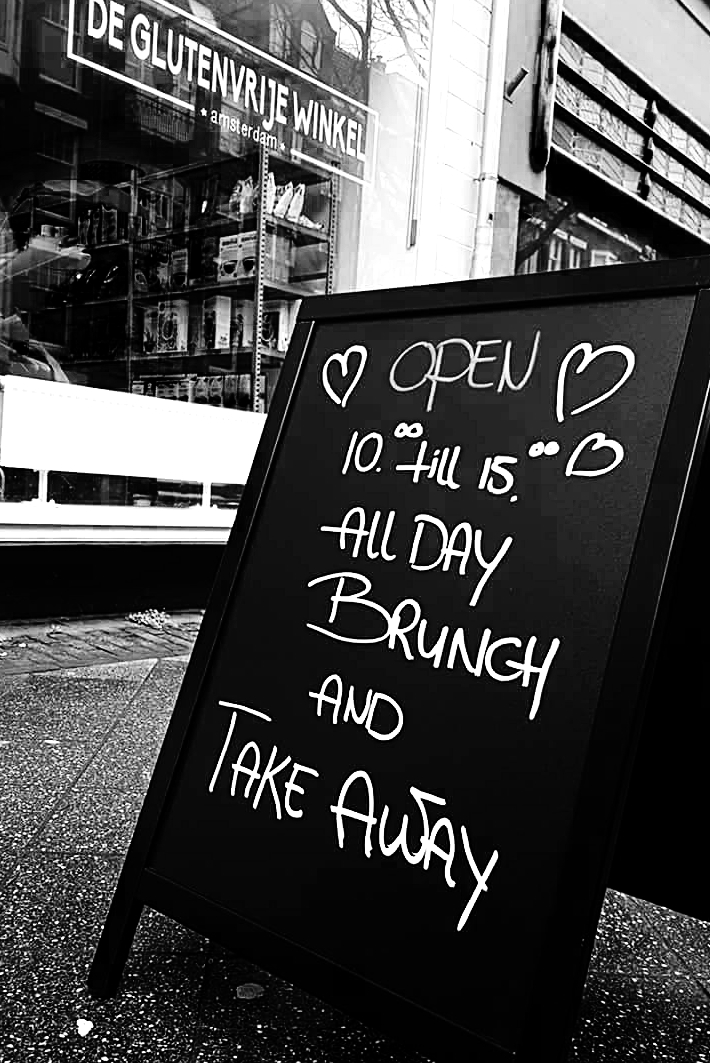 DE GLUTENVRIJE WINKEL
amsterdam
OPEN
10.⁰⁰ till 15.⁰⁰
All DAY
BRUNCH
AND
TAKE AWAY